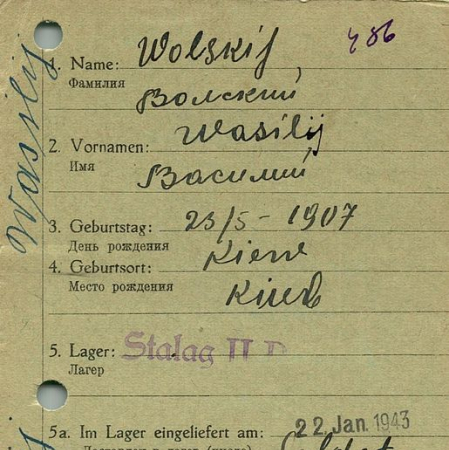 486
1. Name: Wolskij
Фамилия
Волский
2. Vornamen: Wasilij
Имя
Василий
3. Geburtstag: 23/5 - 1907
День рождения
4. Geburtsort: Kiew
Место рождения
Киев
5. Lager: Stalag II D
Лагер
5a. Im Lager eingeliefert am: 22. Jan. 1943
Wassilij